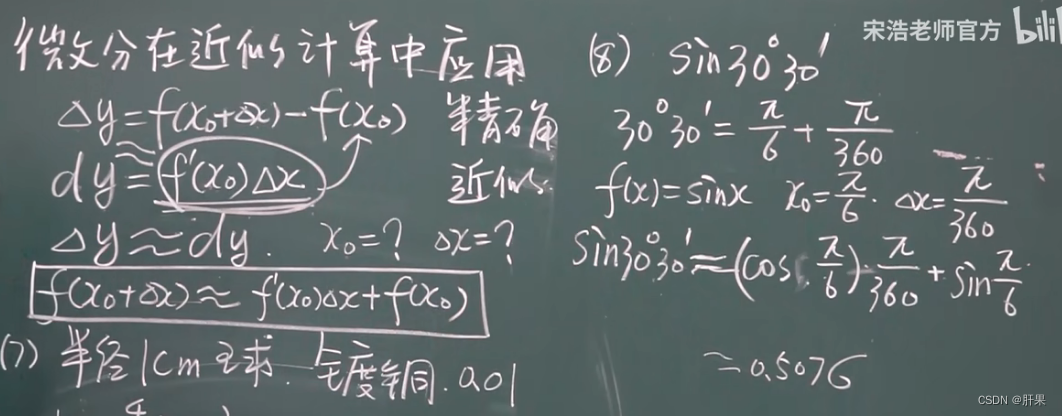 宋浩老师官方 bilibili
微分在近似计算中应用
Δy=f(x₀+Δx)-f(x₀) 精确
≈
dy=f'(x₀)Δx 近似
Δy≈dy. x₀=? Δx=?
f(x₀+Δx)≈f'(x₀)Δx+f(x₀)
(7) 半径1cm 球. 镀铜. 0.01
(8) sin30°30'
30°30'=π/6+π/360
f(x)=sinx x₀=π/6. Δx=π/360
sin30°30'≈(cos π/6)·π/360+sin π/6
≈0.5076
CSDN @肝果